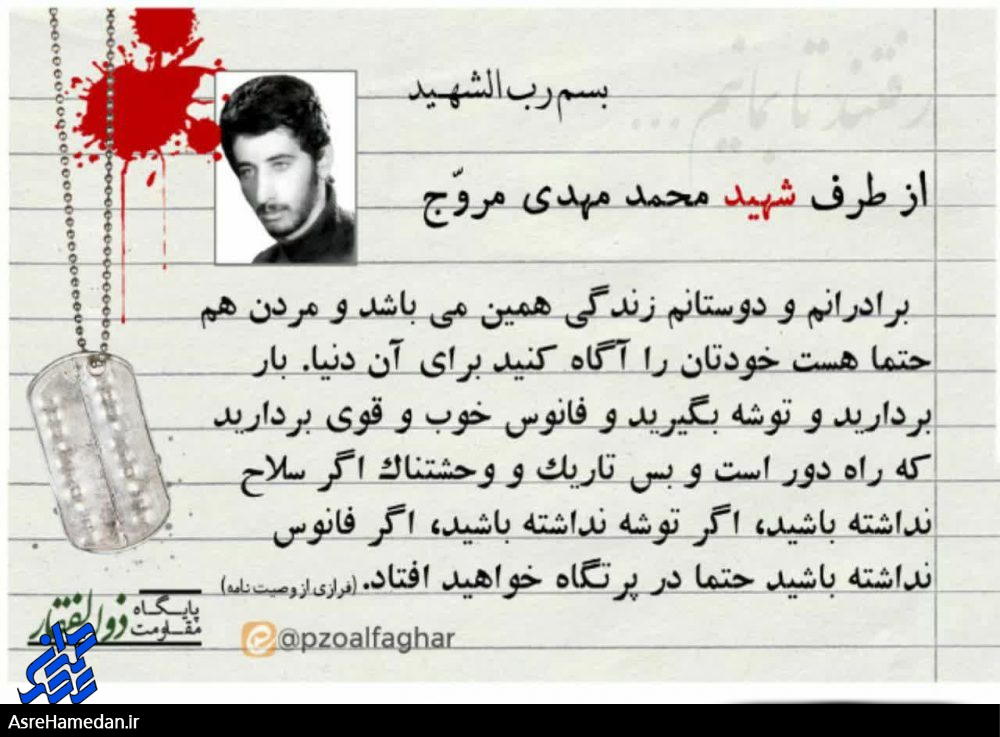 رفتند تا بمانیم ...
بسم رب الشهید
از طرف شهید محمد مهدی مروّج
برادرانم و دوستانم زندگی همین می باشد و مردن هم
حتما هست خودتان را آگاه کنید برای آن دنیا. بار
بردارید و توشه بگیرید و فانوس خوب و قوی بردارید
که راه دور است و بس تاریك و وحشتناك اگر سلاح
نداشته باشید، اگر توشه نداشته باشید، اگر فانوس
نداشته باشید حتما در پرتگاه خواهید افتاد. (فرازی از وصیت نامه)
پایگاه مقاومت ذوالفقار
@pzoalfaghar
AsreHamedan.ir